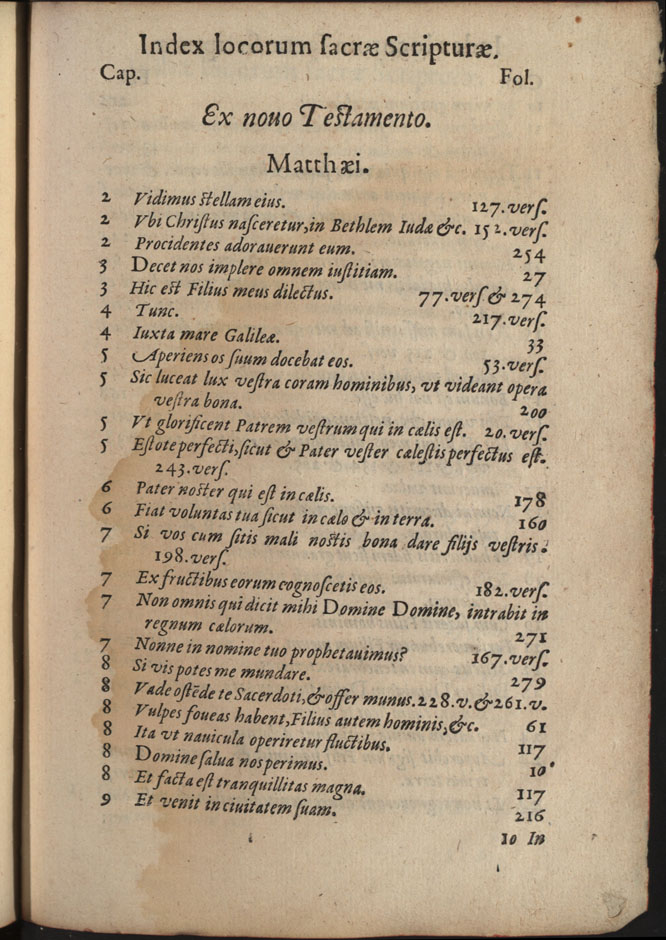 Index locorum ſacræ Scripturæ.
Cap. Fol.
Ex nouo Teſtamento.
Matthæi.
2 Vidimus ſtellam eius. 127.verſ.
2 Vbi Chriſtus naſceretur,in Bethlem Iudæ &c. 152.verſ.
2 Procidentes adorauerunt eum. 254
3 Decet nos implere omnem iuſtitiam. 27
3 Hic eſt Filius meus dilectus. 77.verſ & 274
4 Tunc. 217.verſ.
4 Iuxta mare Galileæ. 33
5 Aperiens os ſuum docebat eos. 53.verſ.
5 Sic luceat lux veſtra coram hominibus, vt videant opera
veſtra bona. 200
5 Vt glorificent Patrem veſtrum qui in cælis eſt. 20.verſ.
5 Eſtote perfecti,ſicut & Pater veſter cæleſtis perfectus eſt.
243.verſ.
6 Pater noſter qui eſt in cælis. 178
6 Fiat voluntas tua ſicut in cælo & in terra. 160
7 Si vos cum ſitis mali noſtis bona dare filijs veſtris.
198.verſ.
7 Ex fructibus eorum cognoſcetis eos. 182.verſ.
7 Non omnis qui dicit mihi Domine Domine, intrabit in
regnum cælorum. 271
7 Nonne in nomine tuo prophetauimus? 167.verſ.
8 Si vis potes me mundare. 279
8 Vade oſtēde te Sacerdoti,&offer munus.228.v.&261.v.
8 Vulpes foueas habent,Filius autem hominis,&c. 61
8 Ita vt nauicula operiretur fluctibus. 117
8 Domine ſalua nos perimus. 10
8 Et facta eſt tranquillitas magna. 117
9 Et venit in ciuitatem ſuam. 216
10 In